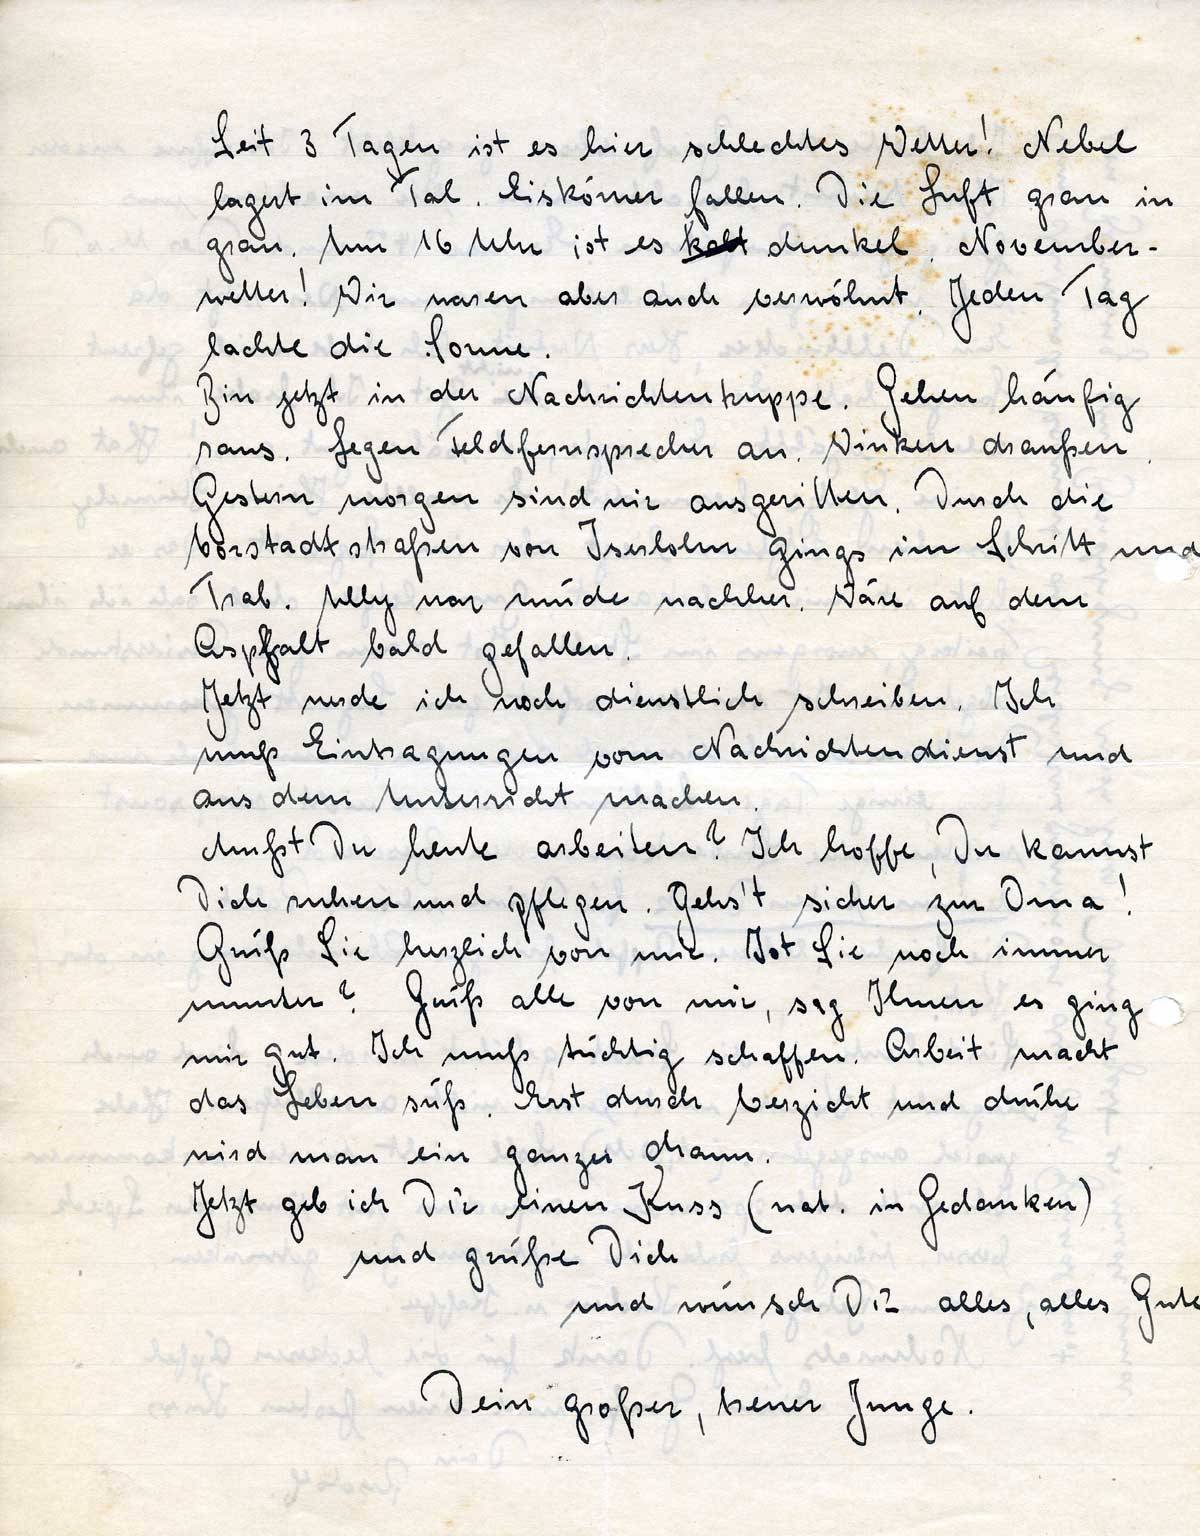 Seit 3 Tagen ist es hier schlechtes Wetter! Nebel
lagert im Tal. Eiskörner fallen. Die Luft grau in
grau. Um 16 Uhr ist es kalt dunkel. November-
wetter! Wir waren aber auch verwöhnt. Jeden Tag
lachte die Sonne.
Bin jetzt in der Nachrichtentruppe. Gehen häufig
raus. Legen Feldfernsprecher an. Winken draußen.
Gestern morgen sind wir ausgeritten. Durch die
Vorstadtstraßen von Iserlohn gings im Schritt und
Trab. Ully war müde nachher. Wäre auf dem
Asphalt bald gefallen.
Jetzt werde ich noch dienstlich schreiben. Ich
muß Eintragungen vom Nachrichtendienst und
aus dem Unterricht machen.
Mußt Du heute arbeiten? Ich hoffe, Du kannst
Dich ruhen und pflegen. Gehs't sicher zur Oma!
Grüß Sie herzlich von mir. Ist Sie noch immer
munter? Grüß alle von mir, sag Ihnen es ging
mir gut. Ich muß tüchtig schaffen. Arbeit macht
das Leben süß. Erst durch Verzicht und Mühe
wird man ein ganzer Mann.
Jetzt geb ich Dir einen Kuss (nat. in Gedanken)
und grüße Dich
und wünsch Dir alles, alles Gute
Dein großer, treuer Junge.